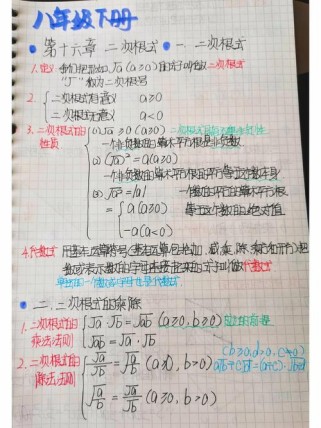 八年级下册
第十六章 二次根式 一、二次根式
1.定义 我们把形如√a (a≥0)的式子叫做二次根式
"√"称为二次根号
2. { 二次根式有意义 a≥0
二次根式无意义 a<0
3.二次根式的性质 (1)√a ≥0 (a≥0)
一个非负数的算术平方根是非负数
(2) (√a)² = a(a≥0)
一个非负数的算术平方根的平方等于它本身
(3) √a² = |a| 一个数的平方的算术平方根
= { a (a≥0) 等于这个数的绝对值
-a(a<0)
4.代数式 用基本运算符号(基本运算包括加、减、乘、除、乘方和开方)把
数或表示数的字母连接起来的式子叫做代数式
单独的一个数或字母也是代数式
二、二次根式的乘除
1.二次根式的乘法法则 { √a·√b=√ab (a≥0,b≥0)
√ab=√a·√b
2.二次根式的除法法则 { √a/√b = √(a/b) (a≥0, b>0)
√(a/b) = √a/√b (a≥0, b>0)